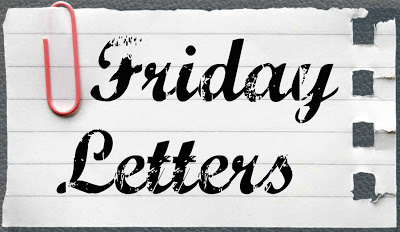 Friday
Letters